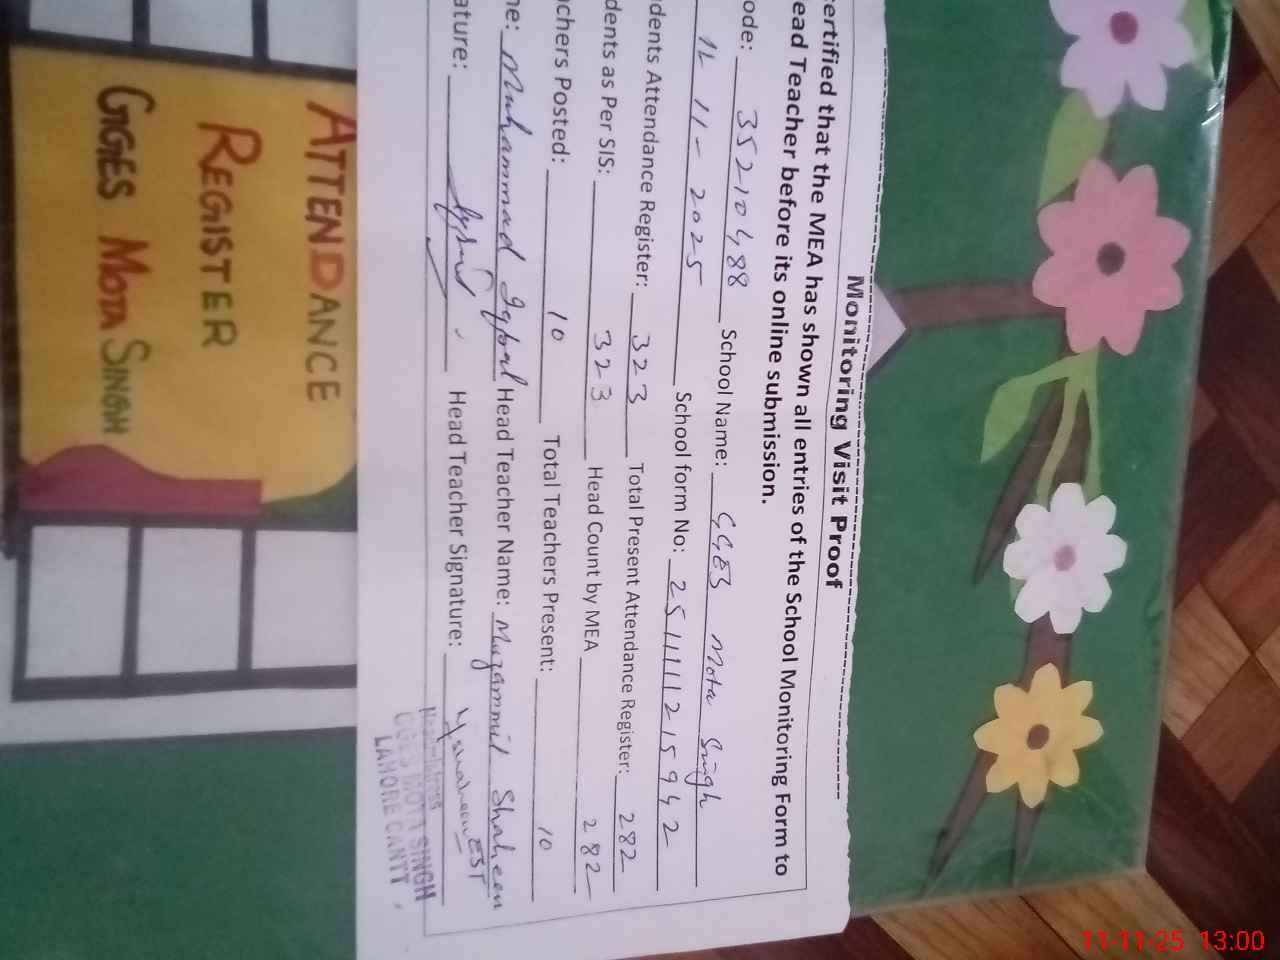 Monitoring Visit Proof
ertified that the MEA has shown all entries of the School Monitoring Form to
ead Teacher before its online submission.
ode: 35210488 School Name: GGES Mota Singh
11-11-2025 School form No: 251111215942
dents Attendance Register: 323 Total Present Attendance Register: 282
dents as Per SIS: 323 Head Count by MEA 282
chers Posted: 10 Total Teachers Present: 10
me: Muhammad Iqbal Head Teacher Name: Muzammil Shaheen
ature: Head Teacher Signature:
Headmistress
GGES MOTA SINGH
LAHORE CANTT.
ATTENDANCE
REGISTER
GGES MOTA SINGH
11-11-25 13:00